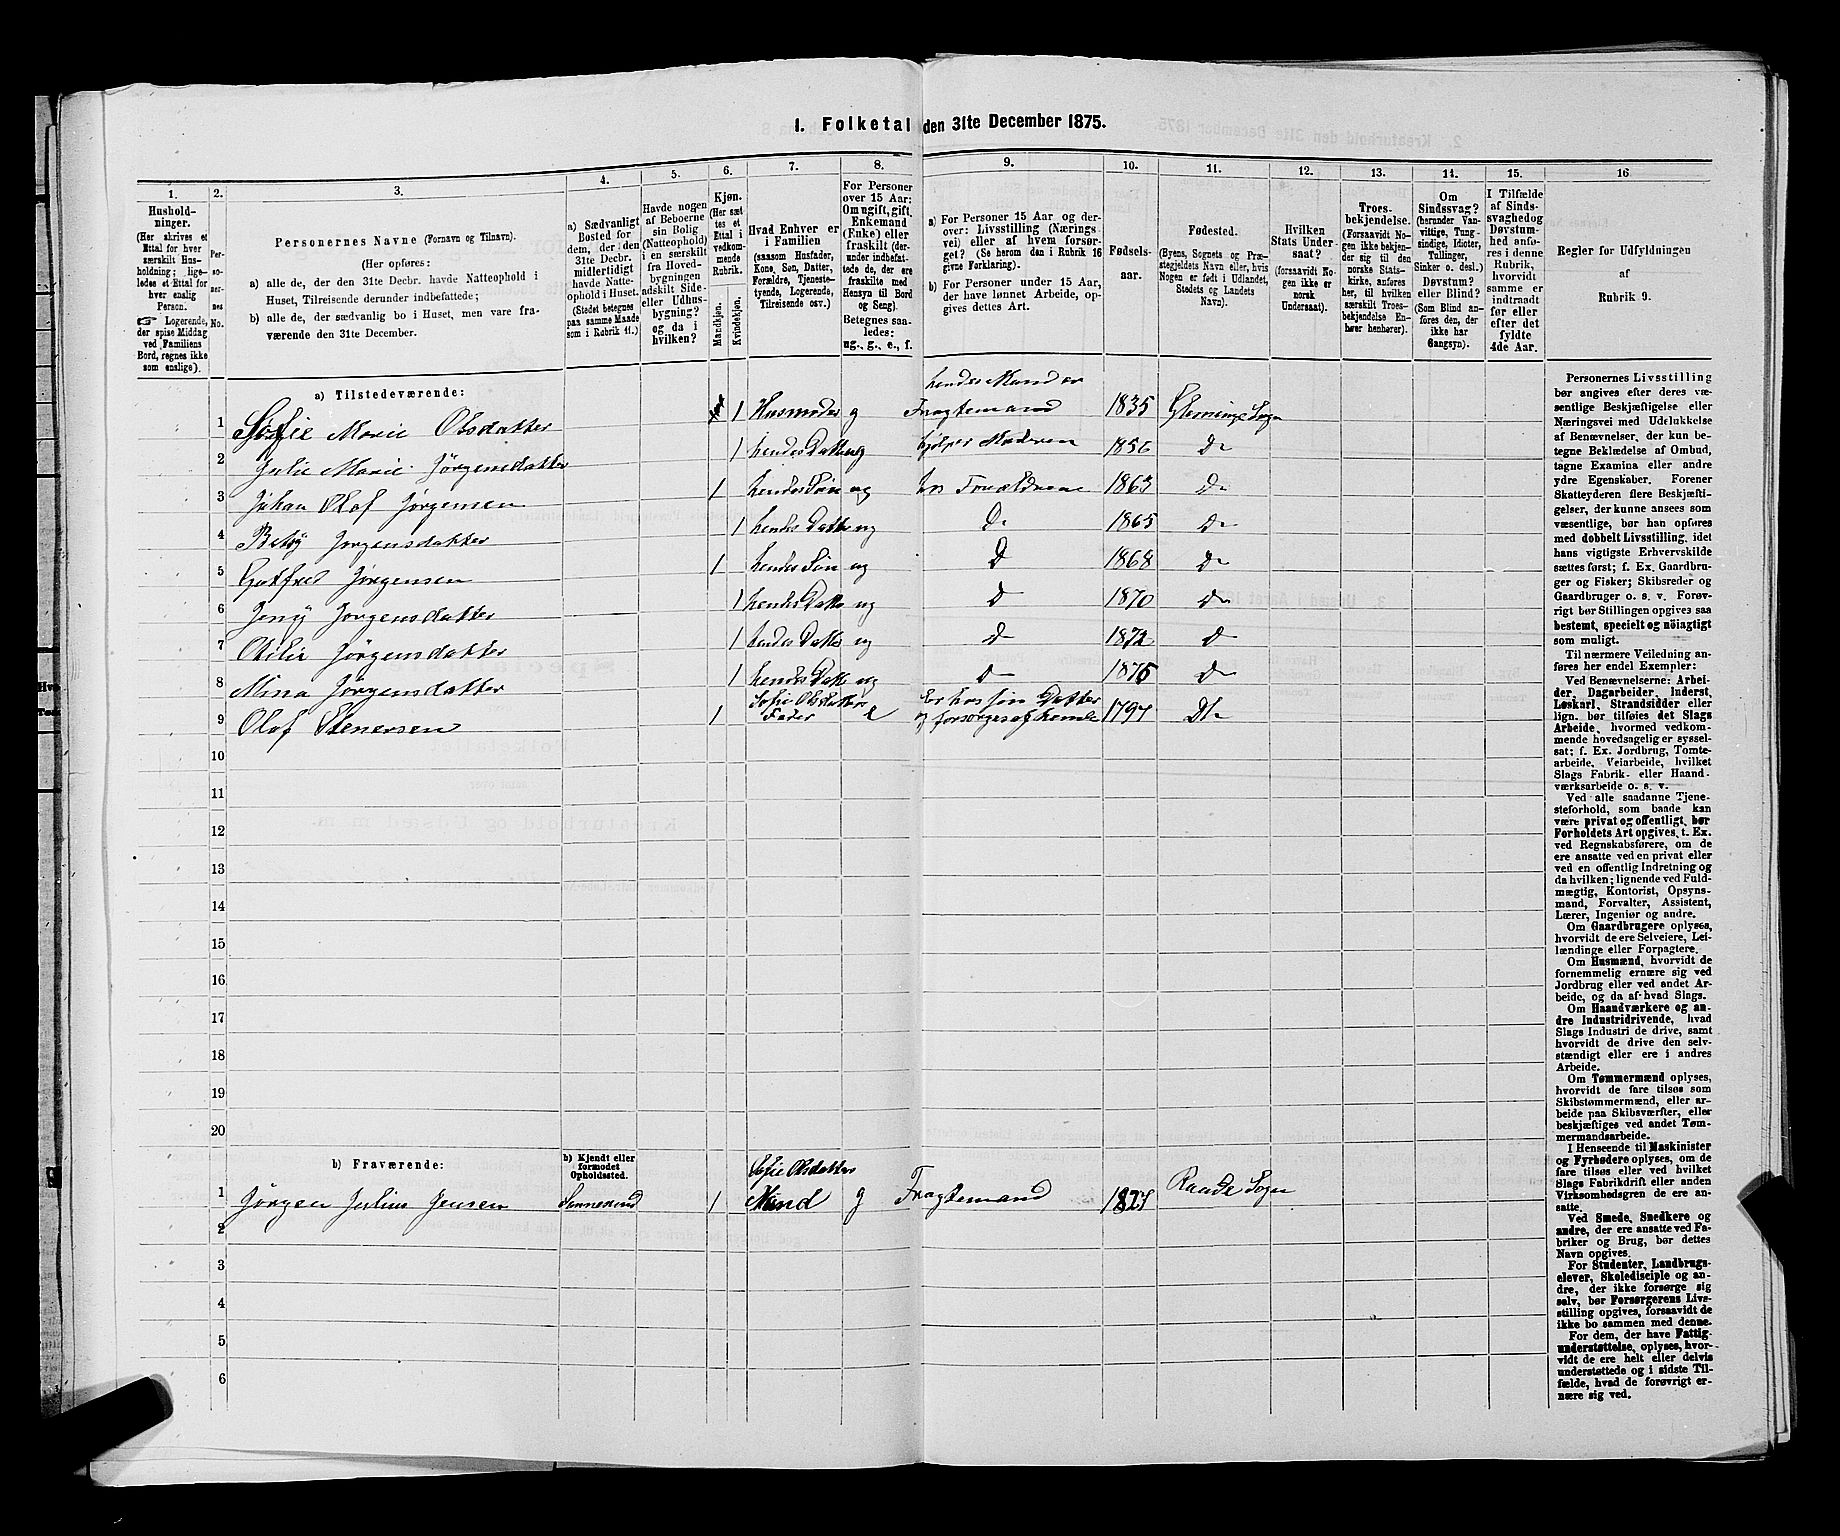 1. Folketal den 31te December 1875.
1.
2.
3.
4.
5.
6.
7.
8.
9.
10.
11.
12.
13.
14.
15.
16
Hushold-
ninger.
(Her skrives et
Ettal for hver
særskilt Hus-
holdning; lige-
ledes et Ettal for
hver enslig
Person.
☞ Logerende,
der spise Middag
ved Familiens
Bord, regnes ikke
som enslige).
Per-
so-
ner-
nes
No.
Personernes Navne (Fornavn og Tilnavn).
(Her opføres:
a) alle de, der den 31te Decbr. havde Natteophold i
Huset, Tilreisende derunder indbefattede;
b) alle de, der sædvanlig bo i Huset, men vare fra-
værende den 31te December.
a) Sædvanligt
Bosted for
dem, der i den
31te Decbr.
midlertidigt
havde Natte-
ophold i Huset.
(Stedet betegnes
paa samme Maade
som i Rubrik 11.)
Havde nogen
af Beboerne
sin Bolig
(Natteophold)
i en særskilt
fra Hoved-
bygningen
adskilt Side-
eller Udhus-
bygning?
og da i
hvilken?
Kjøn.
(Her sæt-
tes et
Ettal i
vedkom-
mende
Rubrik.
Mandkjøn.
Kvindekjøn.
Hvad Enhver er
i Familien
(saasom Husfader,
Kone, Søn, Datter,
Forældre, Tjeneste-
tyende, Logerende,
Tilreisende osv.)
For Personer
over 15 Aar:
Om ugift, gift,
Enkemand
(Enke) eller
fraskilt (der-
under indbefat-
tede de, der ere
fraskilte med
Hensyn til Bord
og Seng).
Betegnes saa-
ledes:
ug., g., e., f.
a) For Personer 15 Aar og der-
over: Livsstilling (Nærings
vei) eller af hvem forsør-
get? (Se herom den i Rubrik 16
givne Forklaring).
b) For Personer under 15 Aar,
der have lønnet Arbeide, op-
gives dettes Art.
Fødsels-
aar.
Fødested.
(Byens, Sognets og Præ-
stegjeldets Navn eller, hvis
Nogen er født i Udlandet,
Stedets og Landets
Navn).
Hvilken
Stats Under-
saat?
(forsaavidt No-
gen ikke er
norsk
Undersaat).
Troes-
bekjendelse.
(Forsaavidt No-
gen ikke bekjen-
der sig til den
norske Stats-
kirke, anføres
her, til hvilken
særskilt Troes-
bekjendelse En-
hver henhører).
Om
Sindssvag?
(herunder Van-
vittige, Tung-
sindige, Idioter,
Tullinger,
Sinker o. desl.)
Døvstum?
eller Blind?
(Som Blind an-
føres den, der
ikke har
Gangsyn).
I Tilfælde
af Sinds-
svaghed og
Døvstum-
hed anfø-
res i denne
Rubrik,
hvorvidt
samme er
indtraadt
før eller
efter det
fyldte
4de Aar.
Regler for Udfyldningen
af
Rubrik 9.
a) Tilstedeværende:
1 Sofie Marie Olsdatter 1 Husmoder g hendes Mand er Fragtemand 1835 Glemminge Sogn
2 Julie Marie Jørgensdatter 1 hendes Datter ug hjelper Moderen 1856 Do
3 Johan Olof Jørgensen 1 hendes Søn ug hos Forældrene 1863 Do
4 Betsy Jørgensdatter 1 hendes Datter ug Do 1865 Do
5 Gotfred Jørgensen 1 hendes Søn ug D 1868 Do
6 Jeny Jørgensdatter 1 hendes Datte ug D 1870 Do
7 Otilie Jørgensdatter 1 hendes Datte ug D 1872 D
8 Mina Jørgensdatter 1 hendes Datte ug D 1875 D
9 Olof Stenersen 1 Sofie Olsdatters Fader e Er hos sin Datter og forsørges af hende 1797 Do
10
11
12
13
14
15
16
17
18
19
20
b) Fraværende:
b) Kjendt eller
formodet
Opholdssted.
1 Jørgen Julius Jensen Sannesund 1 Sofie Olsdatters Mand g Fragtemand 1827 Raade Sogn
2
3
4
5
6
Personernes Livsstilling
bør angives efter deres væ-
sentlige Beskjæftigelse eller
Næringsvei med Udelukkelse
af Benævnelser, der kun be-
tegne Beklædelse af Ombud,
tagne Examina eller andre
ydre Egenskaber. Forener
Skatteyderen flere Beskjæfti-
gelser, der kunne ansees som
væsentlige, bør han opføres
med dobbelt Livsstilling, idet
hans vigtigste Erhvervskilde
sættes først; f. Ex. Gaardbru-
ger og Fisker; Skibsreder og
Gaardbruger o. s. v. Forøv-
rigt bør Stillingen opgives saa
bestemt, specielt og nöiagtigt
som muligt.
Til nærmere Veiledning an-
føres her endel Exempler:
Ved Benævnelserne: Arbei-
der, Dagarbeider, Inderst,
Løskarl, Strandsidder eller
lign. bør tilføies det Slags
Arbeide, hvormed vedkom-
mende hovedsagelig er syssel-
sat; f. Ex. Jordbrug, Tomte-
arbeide, Veiarbeide, hvilket
Slags Fabrik- eller Haand-
værksarbeide o. s. v.
Ved alle saadanne Tjene-
steforhold, som baade kan
være privat og offentligt, bør
Forholdets Art opgives, t. Ex.
ved Regnskabsførere, om de
ere ansatte ved en privat eller
ved en offentlig Indretning og
da hvilken; lignende ved Fuld-
mægtig, Kontorist, Opsyns-
mand, Forvalter, Assistent,
Lærer, Ingeniør og andre.
Om Gaardbrugere oplyses,
hvorvidt de ere Selveiere, Lei-
lændinge eller Forpagtere.
Om Husmænd, hvorvidt de
fornemmelig ernære sig ved
Jordbrug eller ved andet Ar-
beide, og da af hvad Slags.
Om Haandværkere og an-
dre Industridrivende, hvad
Slags Industri de drive, samt
hvorvidt de drive den selv-
stændigt eller ere i andres
Arbeide.
Om Tømmermænd oplyses,
hvorvidt de fare tilsøs som
Skibstømmermænd, eller ar-
beide paa Skibsværfter, eller
beskjæftiges ved andet Tøm-
mermandsarbeide.
I Henseende til Maskinister
og Fyrbødere oplyses, om de
fare tilsøs eller ved hvilket
Slags Fabrikdrift eller anden
Virksomhedsgren de ere an-
satte.
Ved Smede, Snedkere og
andre, der ere ansatte ved Fa-
briker og Brug, bør dettes
Navn opgives.
For Studenter, Landbrugs-
elever, Skoledisciple og an-
dre, der ikke forsørge sig
selv, bør Forsørgerens Livs-
stilling opgives, forsaavidt de
ikke bo sammen med denne.
For dem, der have Fattig-
understøttelse, oplyses, hvor-
vidt de ere helt eller delvis
understøttede og i sidste Til-
fælde, hvad de forøvrigt er-
nære sig ved.